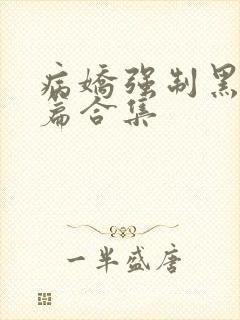 病嬌强制黑
篇合集
一半盛唐